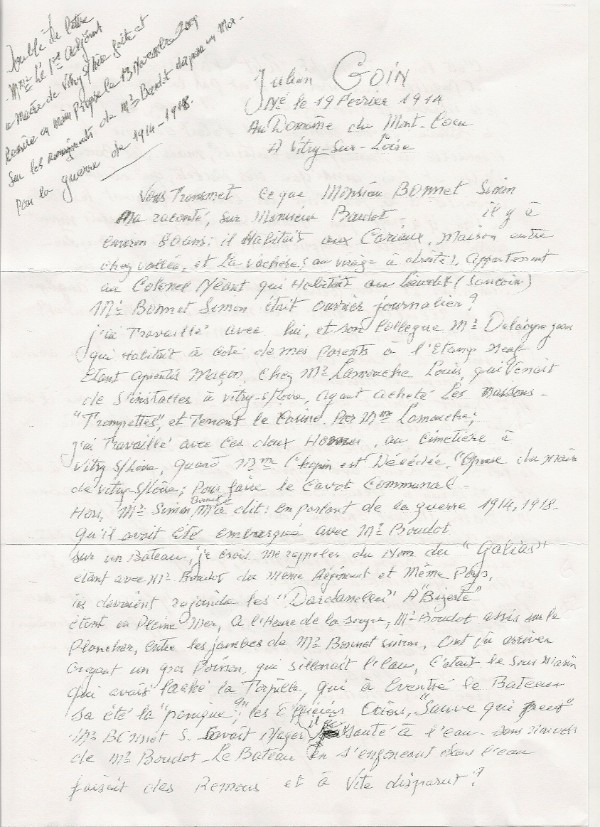 Double de lettre
Mme Le 1er Adjoint
de Vitry s/Loire faite et
Remise en main Propre le 13 Novembre
Sur les renseignements de Mr Baudot
Par la guerre de 1914-1918.
Julien GOIN
Né le 19 Février 1914
Au Domaine du Mont-
A Vitry-Sur-Loire
Vous Transmet ce que Monsieur BONNET Simon
Ma raconté, sur Monsieur Baudot - il y à
environ 80 ans: il Habitait aux maison entre
chez et La Vachères, au virage à Appartenant
au Colonel Néant qui Habitait au
Mr Bonnet Simon était ouvrier journalier?
j'ai Travaillé avec lui, et son Collègue Mr
qui Habitait à coté de mes Parents à l'Etang Neuf
Etant apprentis Maçon, Chez Mr Lamouche Louis, qui Venait
de S'installer à Vitry-s/Loire, ayant acheté Les Maisons-
"Trompettes", et Tenant le Casino, Par Mme Lamouche;
j'ai Travaillé avec ces deux Hommes, au cimetière à
Vitry s/Loire, quand Mme est Décédée, Epouse du Maire
de Vitry-s/Loire; Pour faire le Cavot Communal-
Mr Simon Bonnet M'a dit: En partant de la guerre 1914, 1918-
Qu'il avait été embarqué avec Mr Boudot
sur un Bateau, je crois me rappeler du Nom du "Galias"
étant avec Mr Boudot du Même Régiment et Même Pays,
ils devaient rejoindre les "Dardanelles" A "Bizerte"
étant en Pleine Mer, A l'Heure de la soupe, Mr Boudot assis sur le
Plancher, entre les jambes de Mr Bonnet simon, Ont vu arriver
croyant un gros Poisson, qui sillonait l'eau, C'était le Sous Marin
qui avait laché la Torpille, qui à Eventré le Bateau
Sa été la "panique", les Officiers Criai, "Sauve qui peut"
Mr Bonnet S. Savait Nager il Sauté à l'eau - Sans
de Mr Boudot - Le Bateau en s'enfoncant dans l'eau
faisait des Remous et à Vite disparut?